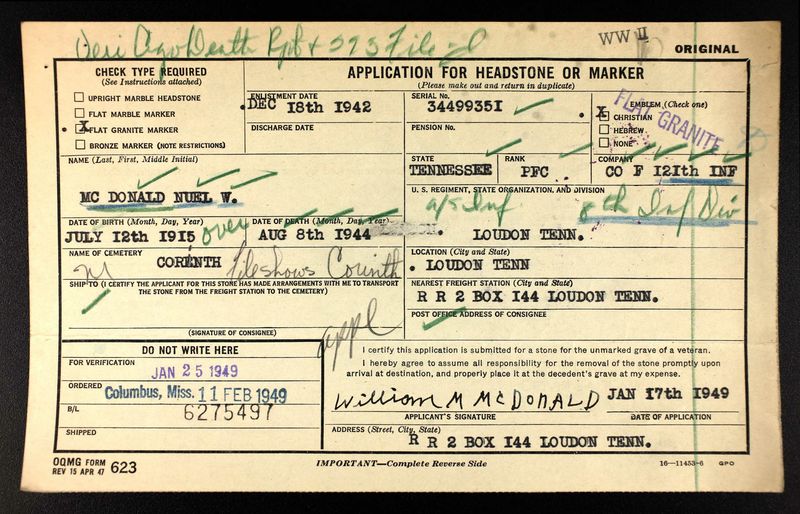 Veri Ago Death Rpt + 293 File
WW II
ORIGINAL
CHECK TYPE REQUIRED
(See Instructions attached)
UPRIGHT MARBLE HEADSTONE
FLAT MARBLE MARKER
X FLAT GRANITE MARKER
BRONZE MARKER (NOTE RESTRICTIONS)
APPLICATION FOR HEADSTONE OR MARKER
(Please make out and return in duplicate)
ENLISTMENT DATE
DEC 18th 1942
SERIAL No.
34499351
EMBLEM (Check one)
X CHRISTIAN
HEBREW
NONE
FLAT GRANITE
DISCHARGE DATE
PENSION No.
NAME (Last, First, Middle Initial)
MC DONALD NUEL W.
STATE
TENNESSEE
RANK
PFC
COMPANY
CO F 121th INF
U. S. REGIMENT, STATE ORGANIZATION, AND DIVISION
a/s Inf 8th Inf Div
LOUDON TENN.
DATE OF BIRTH (Month, Day, Year)
JULY 12th 1915
over
DATE OF DEATH (Month, Day, Year)
AUG 8th 1944
NAME OF CEMETERY
CORENTH
File shows Corinth
LOCATION (City and State)
LOUDON TENN
SHIP TO (I CERTIFY THE APPLICANT FOR THIS STONE HAS MADE ARRANGEMENTS WITH ME TO TRANSPORT
THE STONE FROM THE FREIGHT STATION TO THE CEMETERY)
NEAREST FREIGHT STATION (City and State)
R R 2 BOX 144 LOUDON TENN.
POST OFFICE ADDRESS OF CONSIGNEE
(SIGNATURE OF CONSIGNEE)
appl
DO NOT WRITE HERE
FOR VERIFICATION
JAN 25 1949
ORDERED
Columbus, Miss. 11 FEB 1949
B/L
6275497
SHIPPED
I certify this application is submitted for a stone for the unmarked grave of a veteran.
I hereby agree to assume all responsibility for the removal of the stone promptly upon
arrival at destination, and properly place it at the decedent's grave at my expense.
William M McDONALD
JAN 17th 1949
APPLICANT'S SIGNATURE
DATE OF APPLICATION
ADDRESS (Street, City, State)
R R 2 BOX 144 LOUDON TENN.
OQMG FORM
REV 15 APR 47 623
IMPORTANT—Complete Reverse Side
16—11453-6 GPO